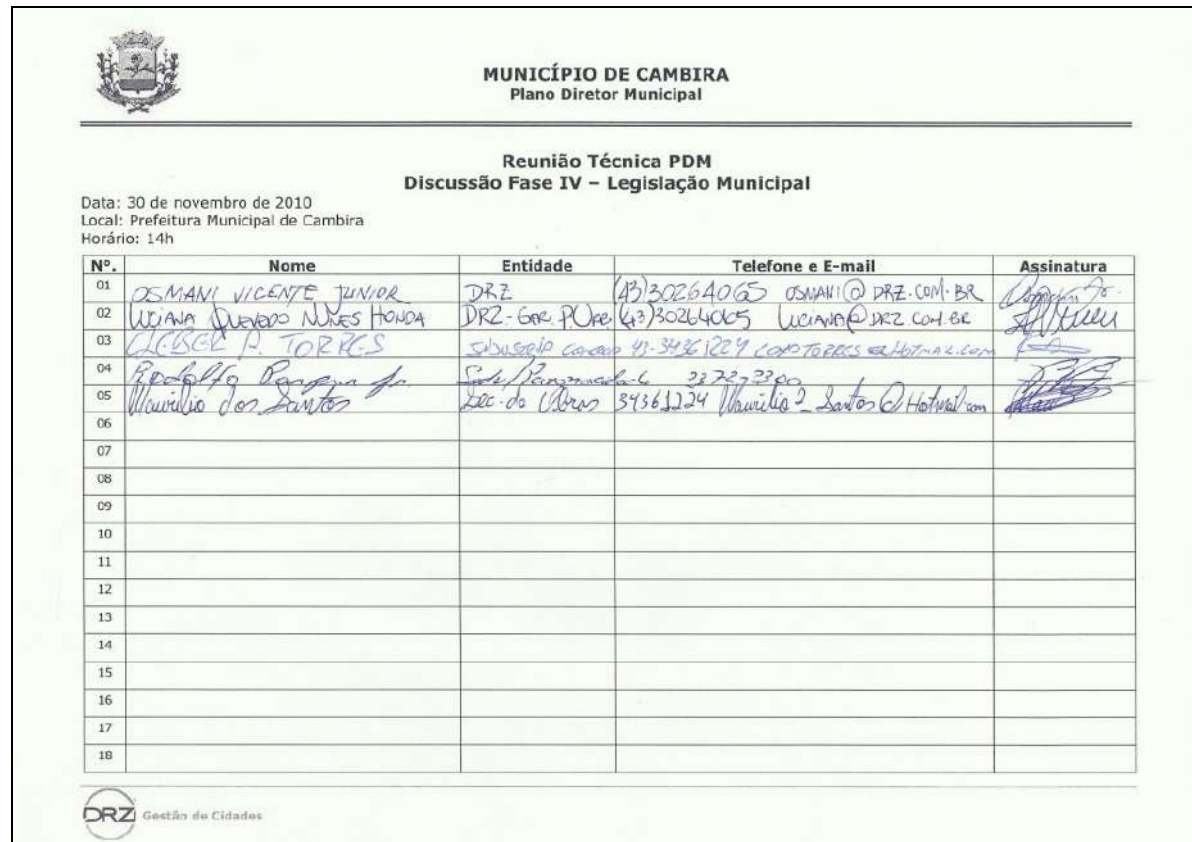 MUNICÍPIO DE CAMBIRA
Plano Diretor Municipal
Reunião Técnica PDM
Discussão Fase IV – Legislação Municipal
Data: 30 de novembro de 2010
Local: Prefeitura Municipal de Cambira
Horário: 14h
Nº. Nome Entidade Telefone e E-mail Assinatura
01 OSMANI VICENTE JUNIOR DRZ (43)30264065 OSMANI@DRZ.COM.BR
02 LUCIANA QUEVEDO NUNES HONDA DRZ- (43)30264065 LUCIANA@DRZ.COM.BR
03 CLEBER A. TORRES 43-34361224
04 Rodolfo Jr.
05 Maurilio dos Santos Sec. de Obras 34361224
06
07
08
09
10
11
12
13
14
15
16
17
18
DRZ Gestão de Cidades